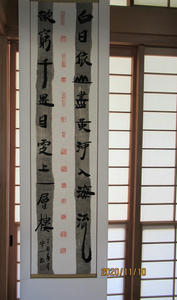 白日依山盡黄河入海流
欲窮千里目更上一層樓
2020/11/10